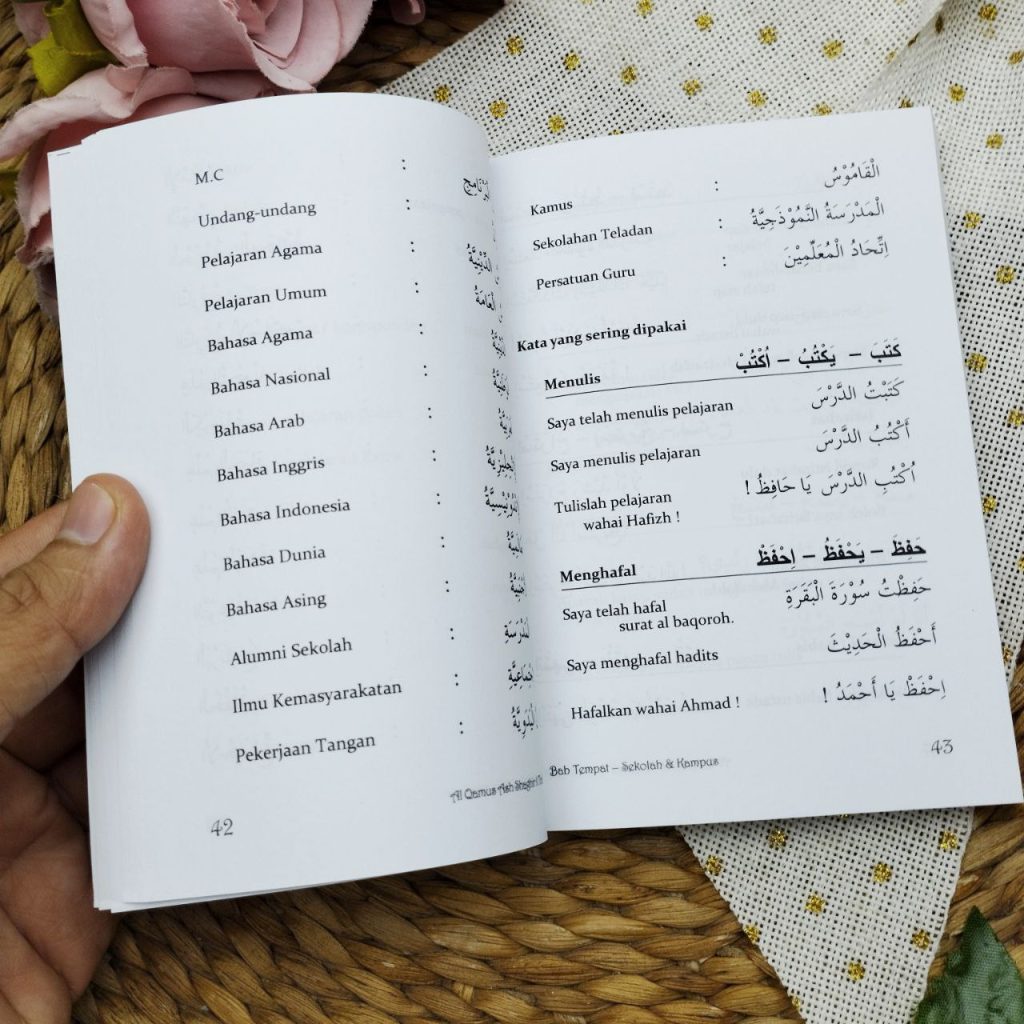 M.C :
Undang-undang :
Pelajaran Agama :
Pelajaran Umum :
Bahasa Agama :
Bahasa Nasional :
Bahasa Arab :
Bahasa Inggris :
Bahasa Indonesia :
Bahasa Dunia :
Bahasa Asing :
Alumni Sekolah :
Ilmu Kemasyarakatan :
Pekerjaan Tangan :
Al Qamus Ash
42
Kamus : الْقَامُوْسُ
Sekolahan Teladan : الْمَدْرَسَةُ النَّمُوْذَجِيَّةُ
Persatuan Guru : اِتِّحَادُ الْمُعَلِّمِيْنَ
Kata yang sering dipakai
Menulis كَتَبَ – يَكْتُبُ – اُكْتُبْ
Saya telah menulis pelajaran كَتَبْتُ الدَّرْسَ
Saya menulis pelajaran أَكْتُبُ الدَّرْسَ
Tulislah pelajaran اُكْتُبِ الدَّرْسَ يَا حَافِظُ !
wahai Hafizh !
Menghafal حَفِظَ – يَحْفَظُ – اِحْفَظْ
Saya telah hafal حَفِظْتُ سُوْرَةَ الْبَقَرَةِ
surat al baqoroh.
Saya menghafal hadits أَحْفَظُ الْحَدِيْثَ
Hafalkan wahai Ahmad ! اِحْفَظْ يَا أَحْمَدُ !
Bab Tempat – Sekolah & Kampus
43